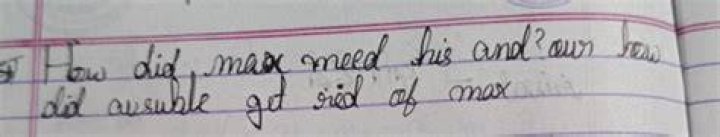 How did max meed his and? aur how
did ausuble get rid of max